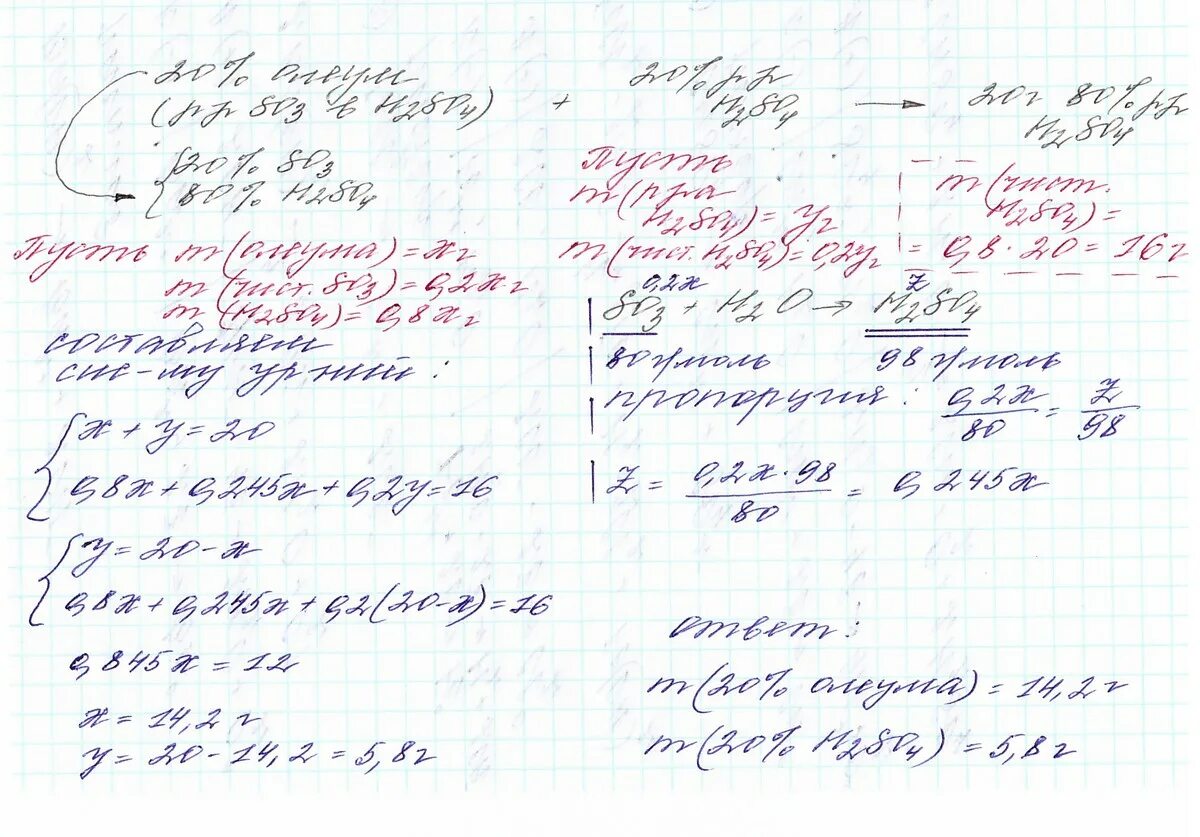 20% олеум
(р-р SO3 в H2SO4)
+
20% р-р
H2SO4
→
20г 80% р-р
H2SO4
{20% SO3
80% H2SO4
Пусть m(олеума) = xг
m(чист. SO3) = 0,2xг
m(H2SO4) = 0,8xг
Пусть
m(р-ра
H2SO4) = yг
m(чист. H2SO4) = 0,2yг
m(чист.
H2SO4) =
= 0,8·20 = 16г
0,2x z
SO3 + H2O → H2SO4
80г/моль 98г/моль
пропорция: 0,2x/80 = z/98
z = 0,2x·98/80 = 0,245x
составляем
сис-му ур-ний:
{x + y = 20
0,8x + 0,245x + 0,2y = 16
{y = 20 - x
0,8x + 0,245x + 0,2(20-x) = 16
0,845x = 12
x = 14,2 г
y = 20 - 14,2 = 5,8г
ответ:
m(20% олеума) = 14,2г
m(20% H2SO4) = 5,8г